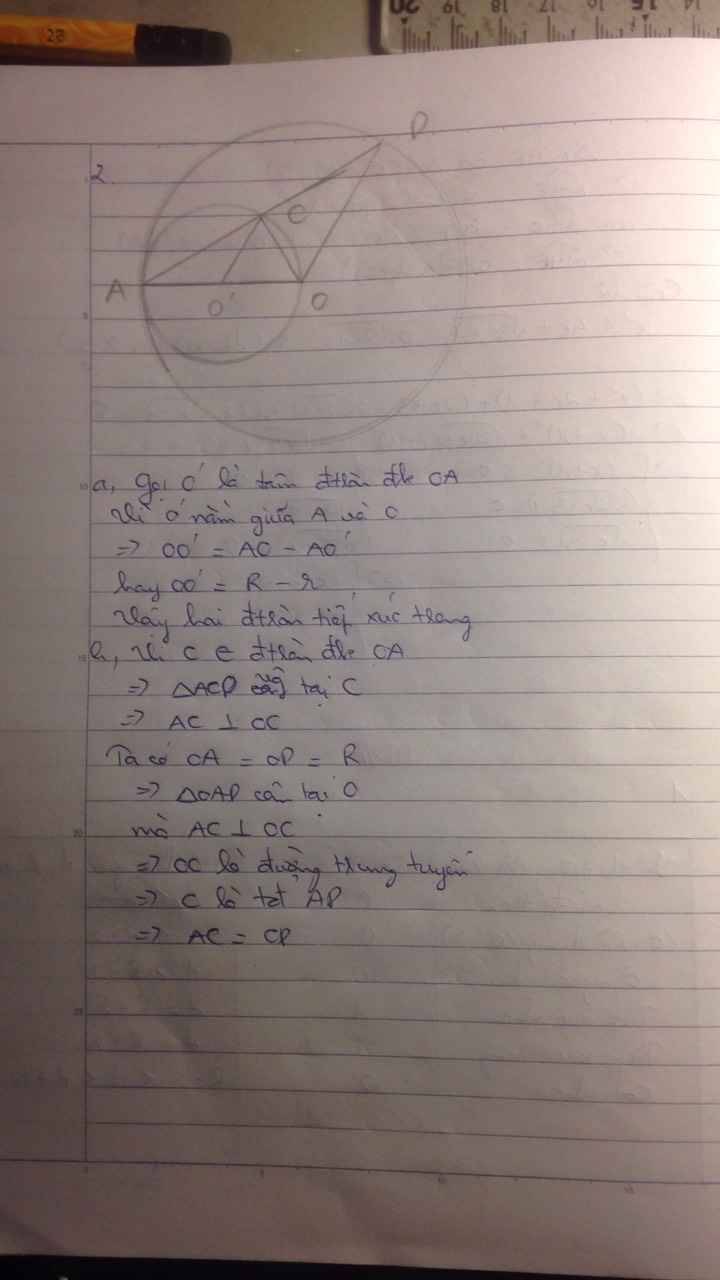 28
20 19 18 17 16 15 14
2.
D
C
A
O'
O
a, Gọi O' là tâm đtròn đk OA
Vì O' nằm giữa A và O
=> OO' = AO - AO'
hay OO' = R - r
Vậy hai đtròn tiếp xúc trong
b, Vì C ∈ đtròn đk OA
=> ΔACO tại C
=> AC ⊥ OC
Ta có OA = OD = R
=> ΔOAD cân tại O
mà AC ⊥ OC
=> OC là đường trung tuyến
=> C là tđ AD
=> AC = CD